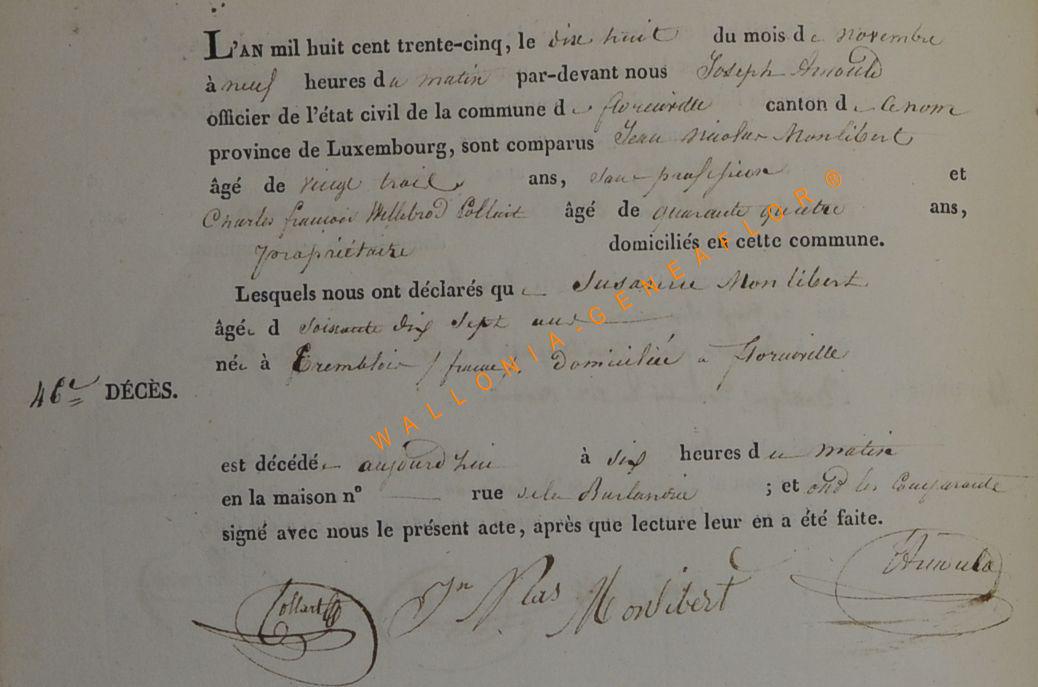 L'AN mil huit cent trente-cinq, le dix huit du mois de novembre
à neuf heures du matin par-devant nous Joseph Arnould
officier de l'état civil de la commune de florenville canton de le nom
province de Luxembourg, sont comparus Jean Nicolas Monlibert
âgé de vingt trois ans, sans profession et
Charles françois Willebrod Collart âgé de quarante quatre ans,
propriétaire domiciliés en cette commune.
Lesquels nous ont déclarés que Susanne Monlibert
âgée d soisante dix sept ans
née à Tremblois (france) domiciliée a florenville
46e DÉCÈS.
est décédée aujourd'hui à six heures du matin
en la maison n° rue de la ; et ond les Comparants
signé avec nous le présent acte, après que lecture leur en a été faite.
Collart Jn Nlas Monlibert JArnould
WALLONIA-GENEAFLOR®